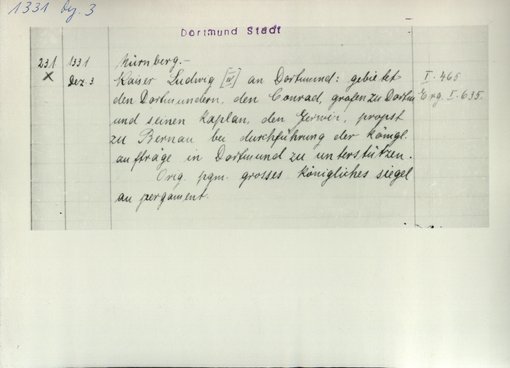 1331 dz. 3
Dortmund Stadt
231 1331 Nürnberg.-
x Dez. 3 Kaiser Ludwig [IV] an Dortmund: gebietet I. 465
den Dortmundern, den Conrad, grafen zu Dortm Erg. I. 635.
und seinen kaplan, den Gerwin, propst
zu Bernau bei durchführung der königl.
aufträge in Dortmund zu unterstützen.
Orig. pgm. grosses königliches siegel
an pergament